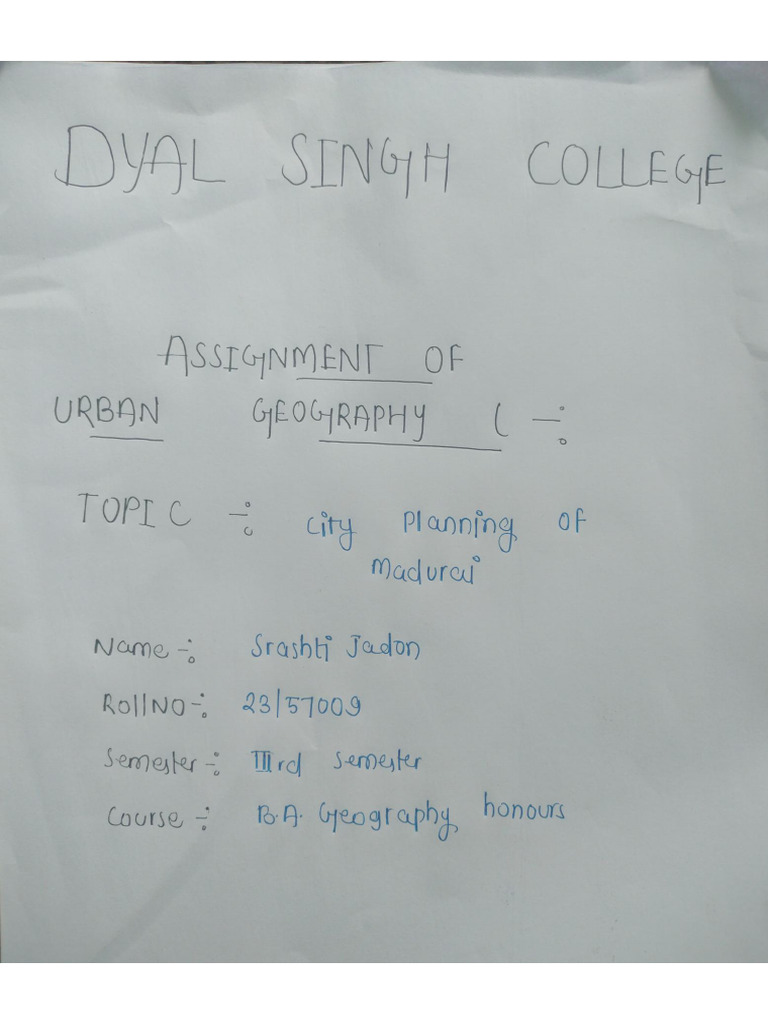 DYAL SINGH COLLEGE
ASSIGNMENT OF
URBAN GEOGRAPHY ( -:
TOPIC -: City Planning of
Madurai
Name -: Srashti Jadon
Roll NO -: 23/57009
Semester -: IIIrd Semester
Course -: B.A. Geography honours